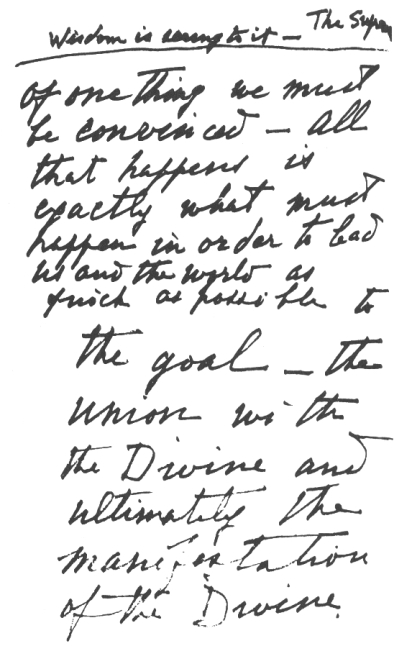 Wisdom is seeing to it — The Supra
of one thing we must
be convinced — all
that happens is
exactly what must
happen in order to lead
us and the world as
quick as possible to
the goal — the
union with
the Divine and
ultimately the
manifestation
of the Divine.